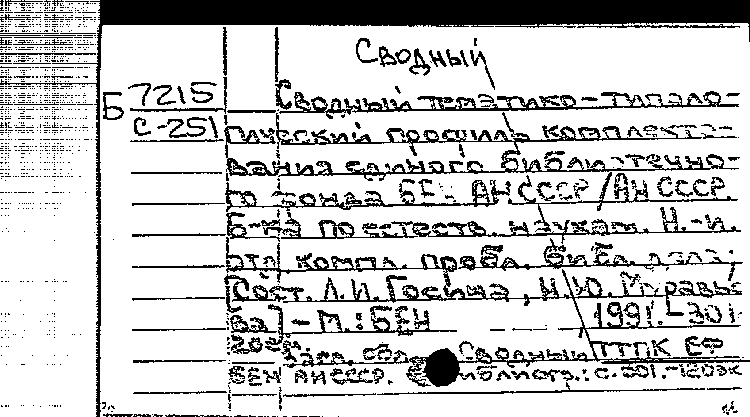 Сводный
Б 7215 Сводный тематико-типоло-
С-251 гический профиль комплекто-
вания единого библиотечно-
го фонда БЕН АН СССР/АН СССР.
Б-ка по естеств. наукам. Н.-и.
отд. компл. пробл. библ. дела;
[Сост. Л.И. Госина, Н.Ю. Муравье
ва] - М.: БЕН 1991. - 301
Загл. обл. Сводный ТТПК ЕФ
БЕН АН СССР. Библиогр.: с.